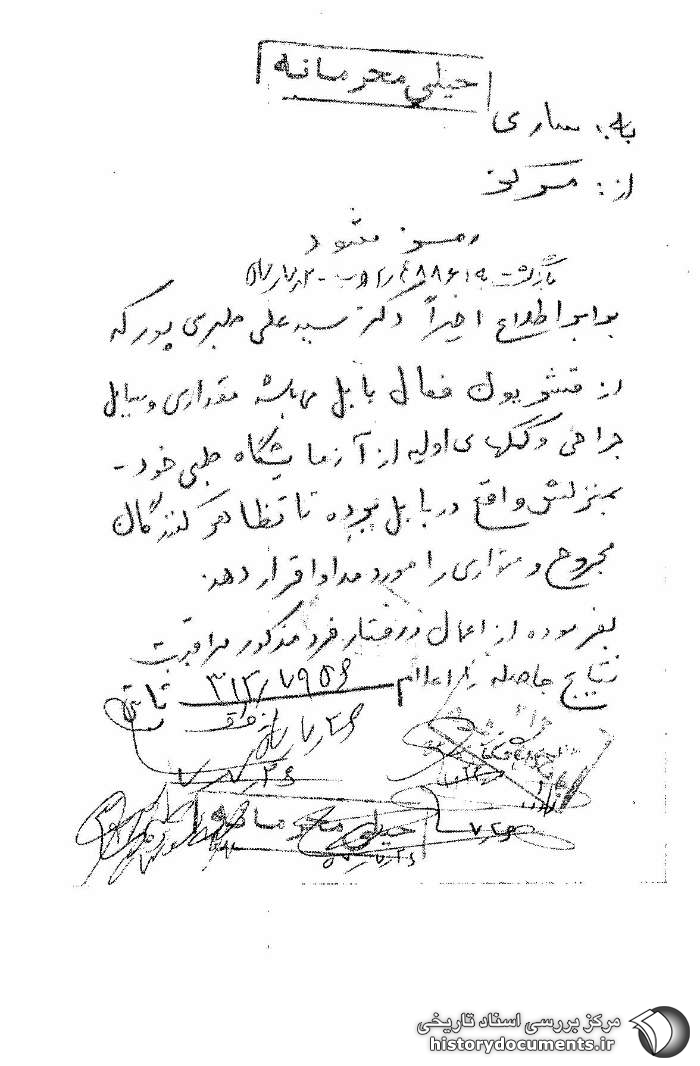 خیلی محرمانه
به: ساری
از: مرکز
رمز شود
بازگشت به
برابر اطلاع اخیراً دکتر سید علی طبری پور که
از قشریون فعال بابل میباشد مقداری وسایل
جراحی و کمکهای اولیه از آزمایشگاه طبی خود -
بمنزلش واقع در بابل برده تا تظاهر کنندگان
مجروح و متواری را مورد مداوا قرار دهد.
بفرموده از اعمال و رفتار فرد مذکور مراقبت
نتایج حاصله را اعلام ۳۱۲/۷۹۵۶ ثابتی
خیلی محرمانه
مرکز بررسی اسناد تاریخی
historydocuments.ir